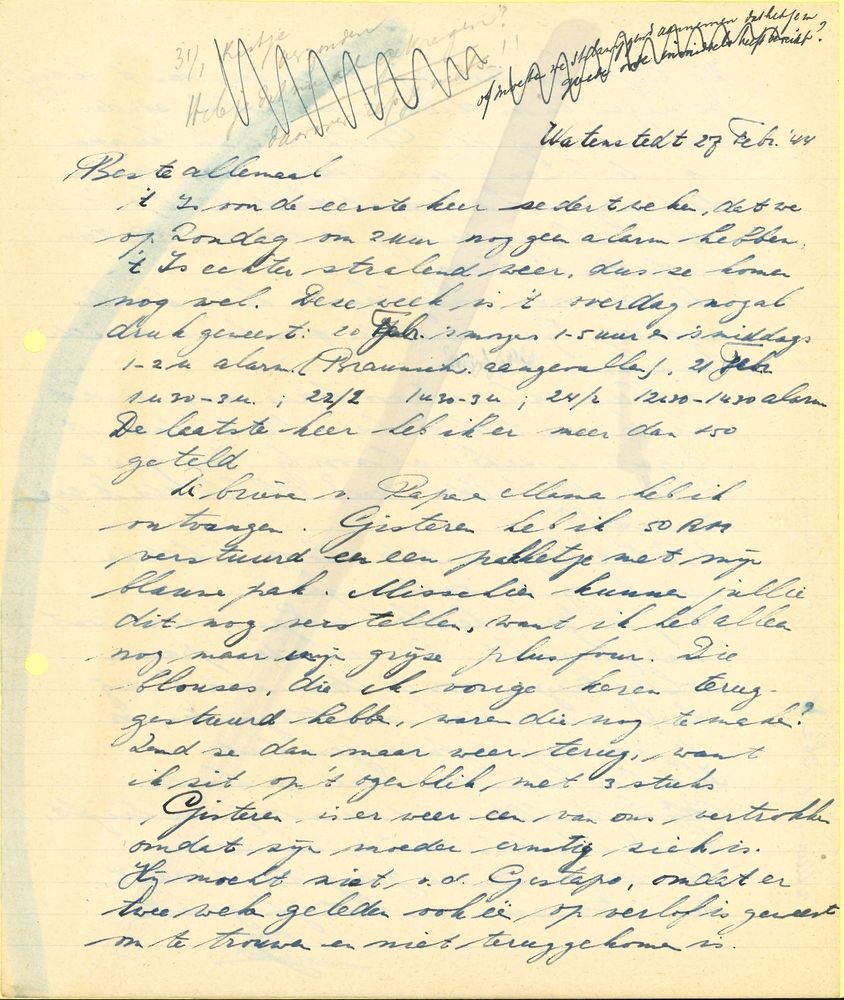 31/1 kistje gezonden
Heb je dat al gekregen?
daarover !!
of moeten we stilzwijgend aannemen dat het je in
goede orde heeft bereikt?
Watenstedt 27 Febr. '44
Beste allemaal
't Is von de eerste keer sedert weken, dat we
op Zondag om 2 uur nog geen alarm hebben,
't Is echter stralend weer, dus ze komen
nog wel. Deze week is 't overdag nogal
druk geweest: 20 Febr. 's morges 1-5 uur en 's middags
1-2 u alarm. (Braunsch. aangevallen), 21 Febr
1u30-3u. ; 22/2 1u30-3u ; 24/2 12u30-1u30 alarm
De laatste keer heb ik er meer dan 150
geteld
De brieven v. Papa e Mama heb ik
ontvangen. Gisteren heb ik 50 RM
verstuurd en een pakketje met mijn
blauwe pak. Misschien kunnen jullie
dit nog verstellen, want ik heb alleen
nog maar mijn grijze plusfour. Die
blouses, die ik vorige keren terug-
gestuurd hebbe, waren die nog te maken?
Zend ze dan maar weer terug, want
ik zit op 't ogenblik met 3 stuks
Gisteren is er weer een van ons vertrokken
omdat zijn moeder ernstig ziek is.
Hij mocht niet v.d. Gestapo, omdat er
twee weken geleden ook één op verlof is geweest
om te trouwen en niet teruggekomen is.